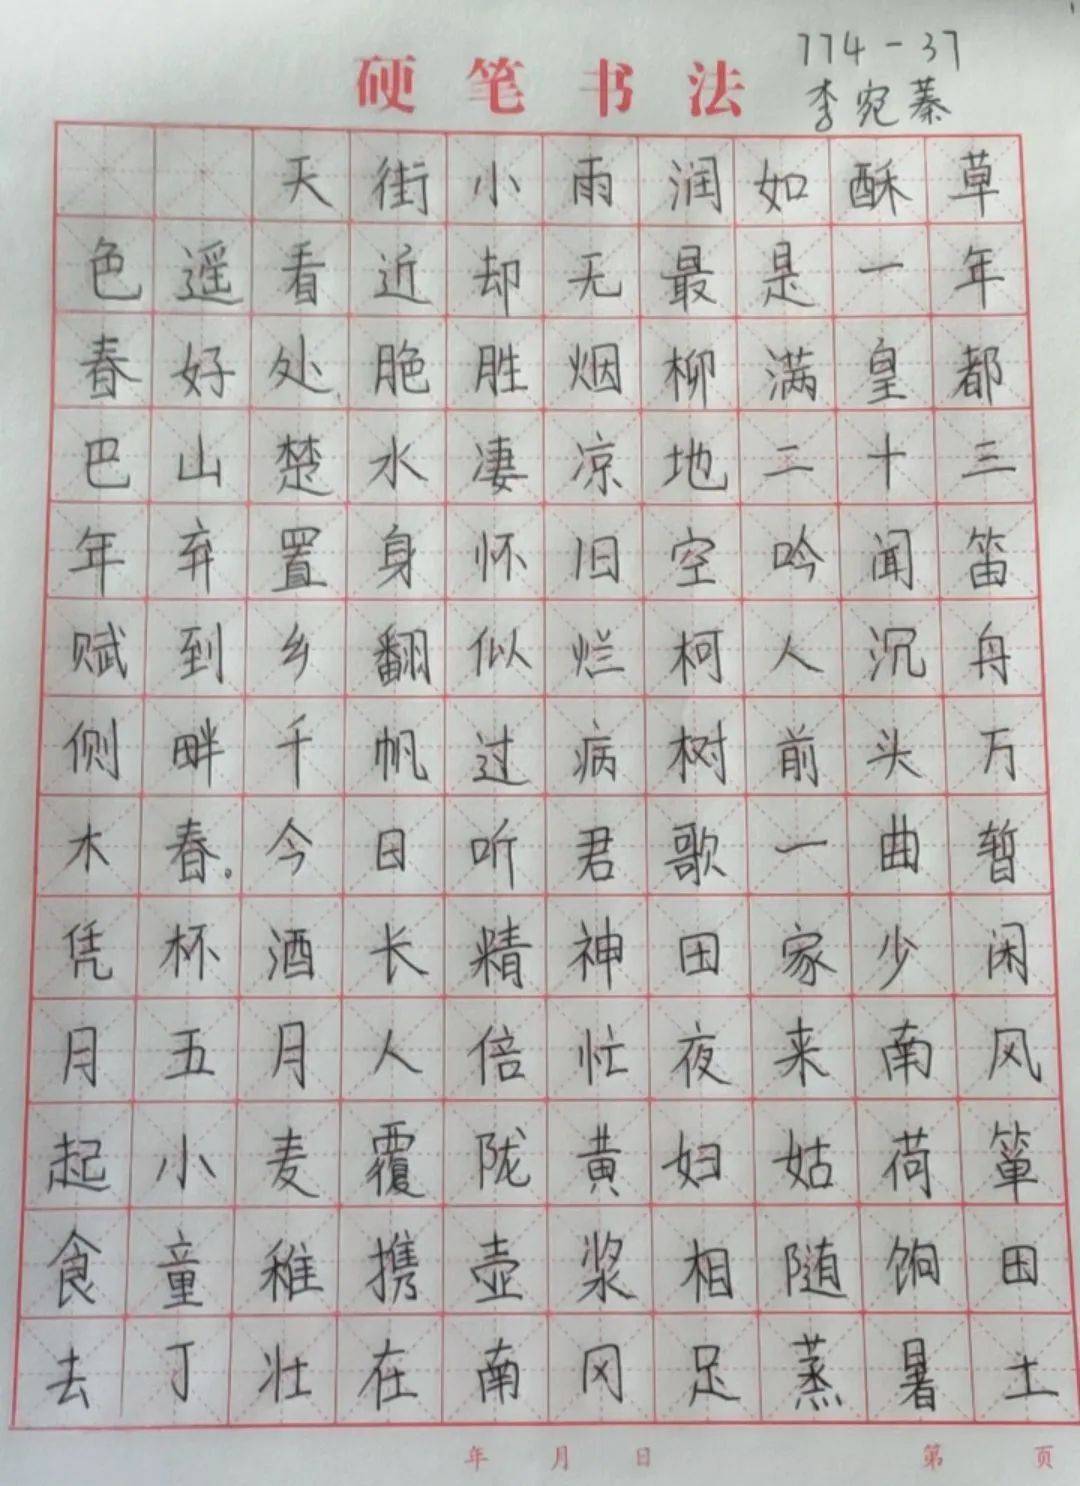 774-37
硬笔书法
李宛蓁
天街小雨润如酥草
色遥看近却无最是一年
春好处胞胜烟柳满皇都
巴山楚水凄凉地二十三
年弃置身怀旧空吟闻笛
赋到乡翻似烂柯人沉舟
侧畔千帆过病树前头万
木春。今日听君歌一曲暂
凭杯酒长精神田家少闲
月五月人倍忙夜来南风
起小麦覆陇黄妇姑荷箪
食童稚携壶浆相随饷田
去丁壮在南冈足蒸暑土
年 月 日 第 页